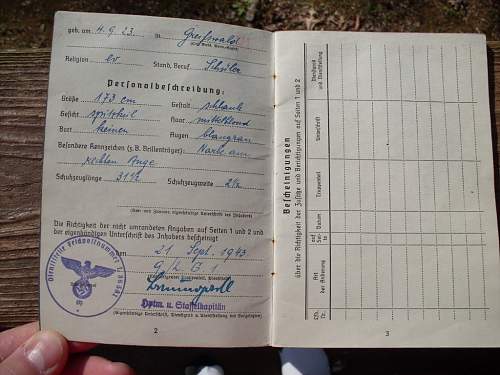 geb. am 4. 9. 23. in Greifswald
Religion ev Stand, Beruf Schüler
Personalbeschreibung:
Größe 173 cm Gestalt schlank
Gesicht spitzkel Haar mittelblond
Bart keinen Augen blaugrau
Besondere Kennzeichen (z.B. Brillenträger): Narbe am
rechten Auge
Schuhzeuglänge 31½ Schuhzeugweite 2½
(Vor- und Zuname, eigenhändige Unterschrift des Inhabers)
Die Richtigkeit der nicht umrandeten Angaben auf Seiten 1 und 2 und
der eigenhändigen Unterschrift des Inhabers bescheinigt
den 21. Sept. 1943.
Dienststelle Feldpostnummer
Hptm. u. Staffelkapitän
(Eigenhändige Unterschrift, Dienstgrad u. Dienststellung des Vorgesetzten)
2
Bescheinigungen
über die Richtigkeit der Zusätze und Berichtigungen auf Seiten 1 und 2
Lfd. Nr.
Art der Änderung
auf Seite
Datum
Truppenteil
Unterschrift
Dienstgrad und Dienststellung
3